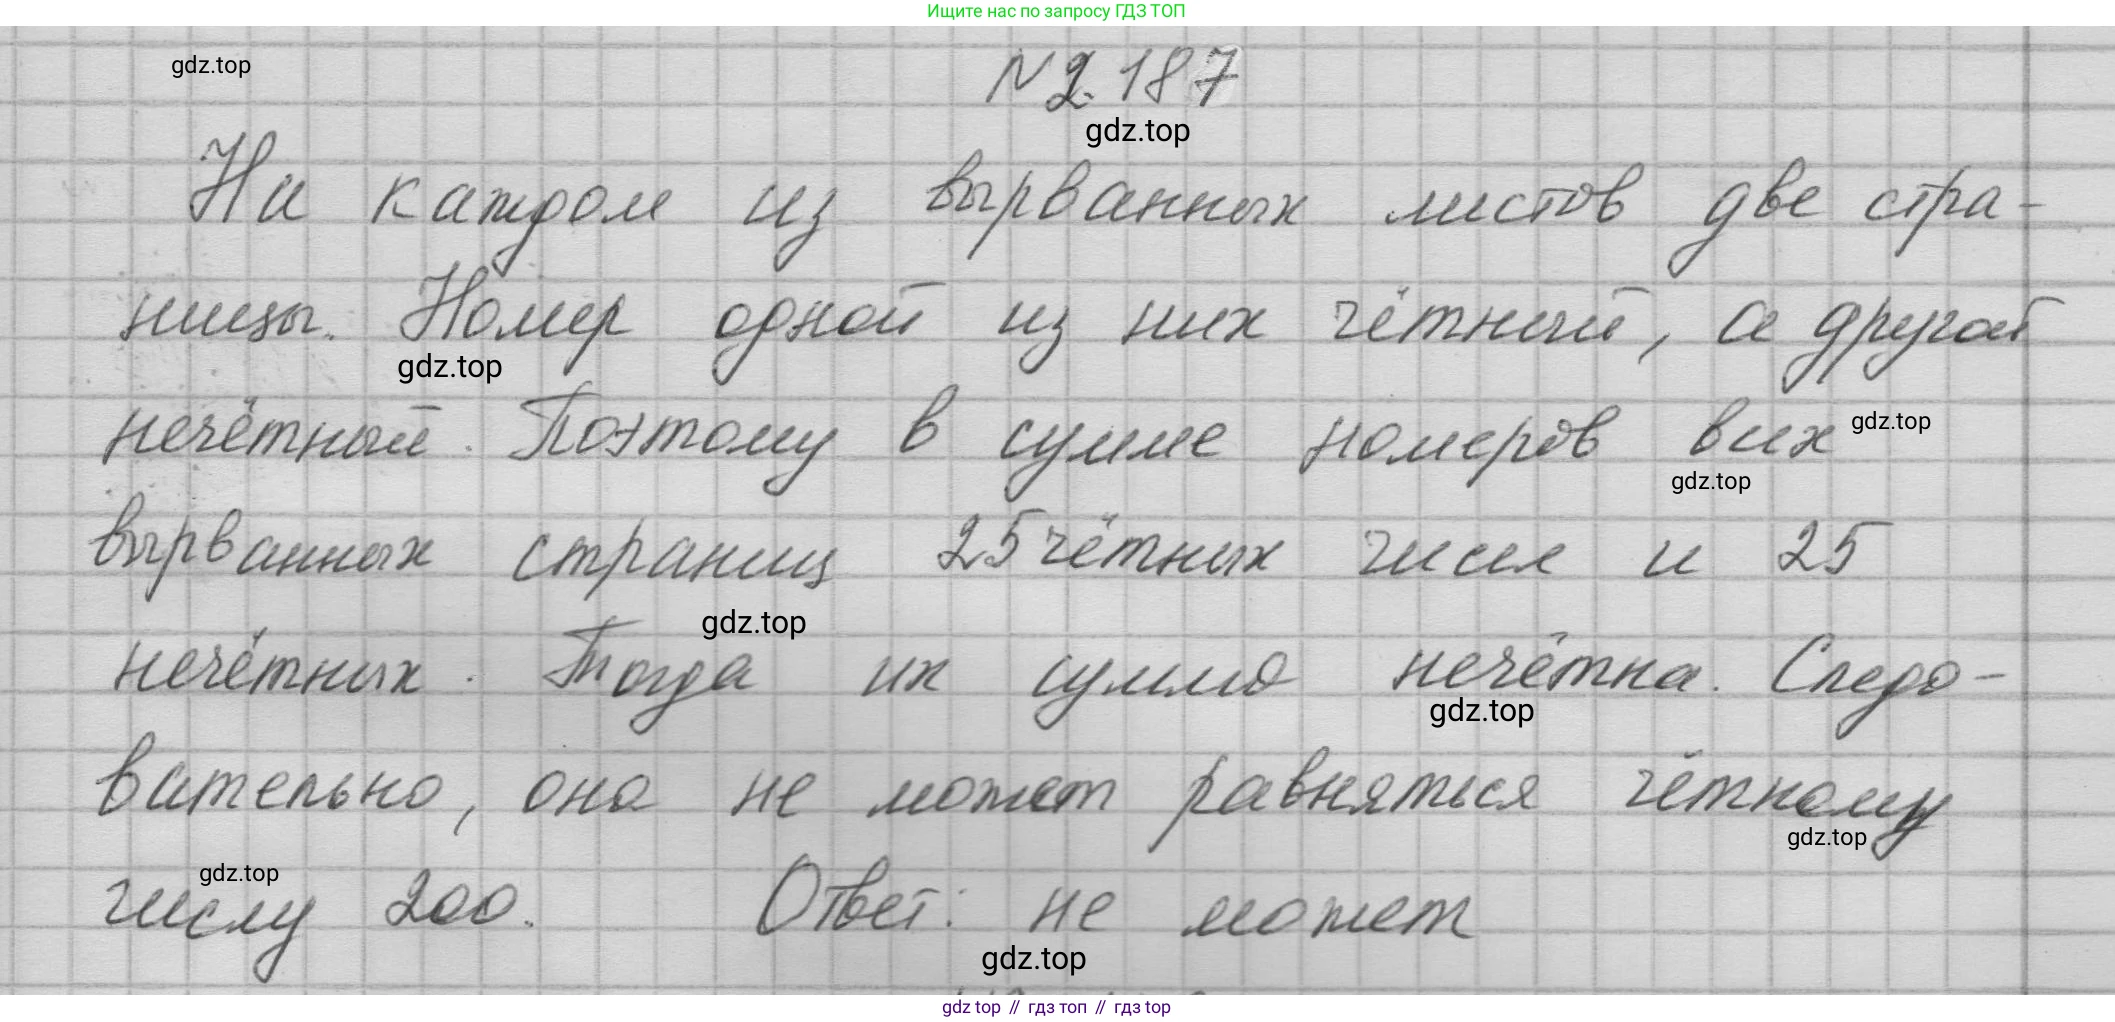 Ищите нас по запросу ГДЗ ТОП
gdz.top
N 2.187
gdz.top
На каждом из вырванных листов две стра-
ницы. Номер одной из них чётный, а другой
gdz.top
нечётный. Поэтому в сумме номеров вих
gdz.top
gdz.top
вырванных страниц 25 чётных чисел и 25
gdz.top
нечётных. Тогда их сумма нечётна. Следо-
gdz.top
вательно, она не может равняться чётному
gdz.top
gdz.top
числу 200. Ответ: не может
gdz.top
gdz top // гдз топ // гдз top